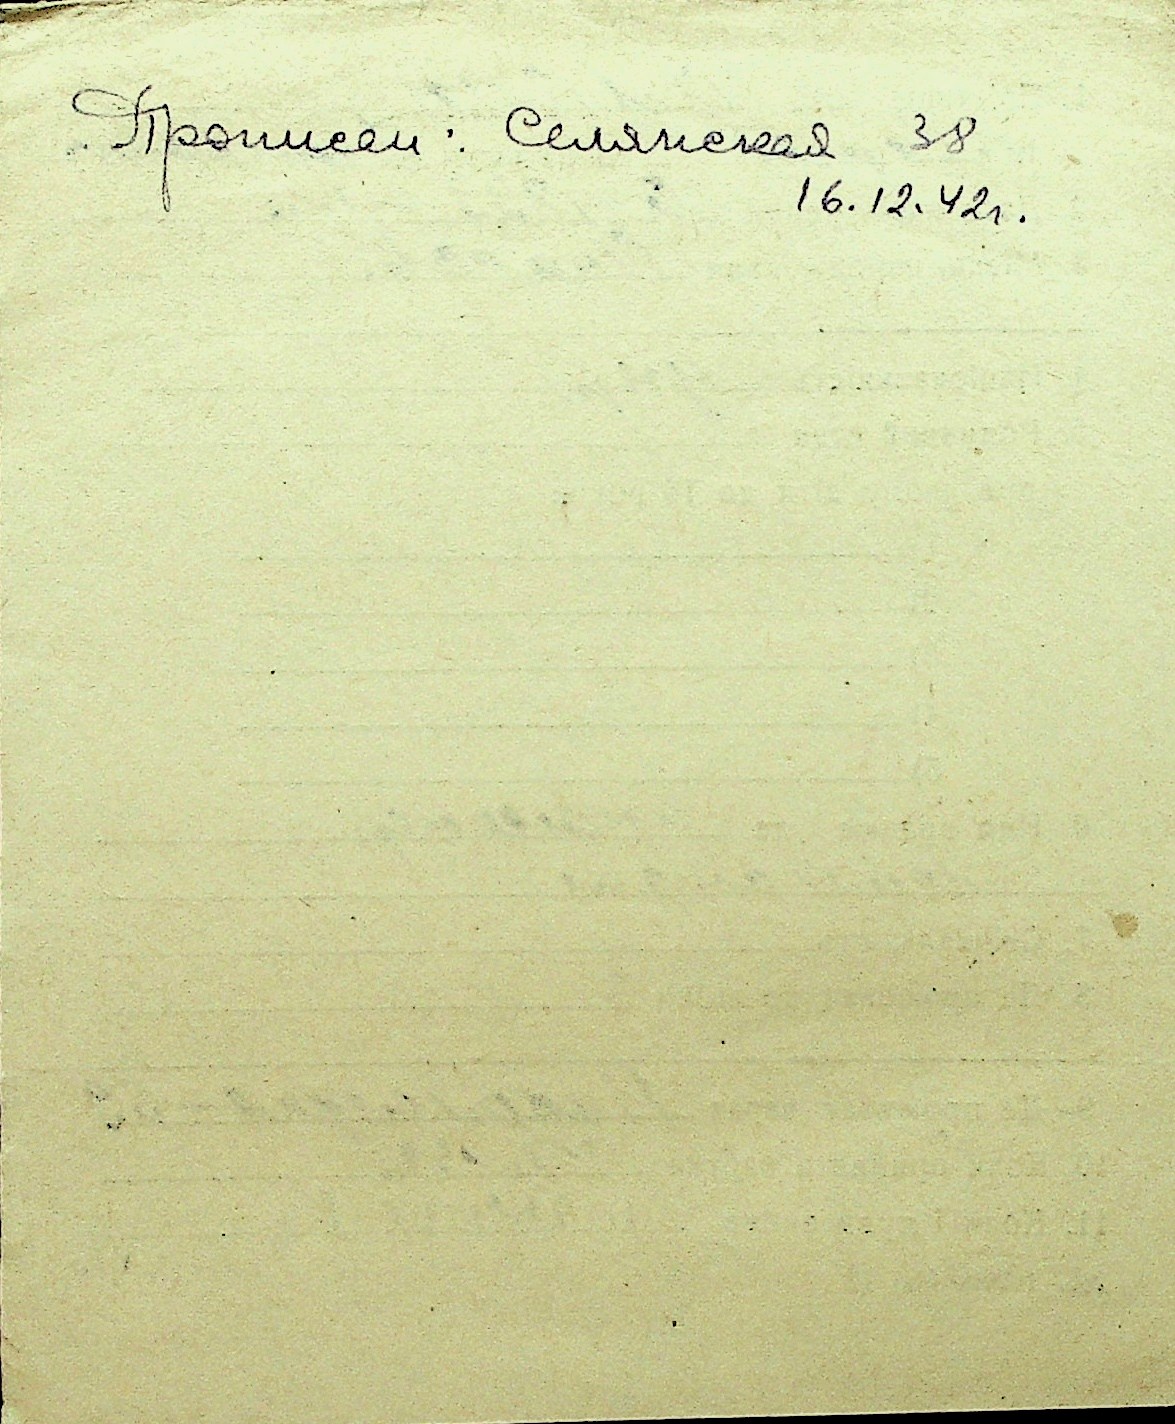 Прописан: Селянская 38
16.12.42г.